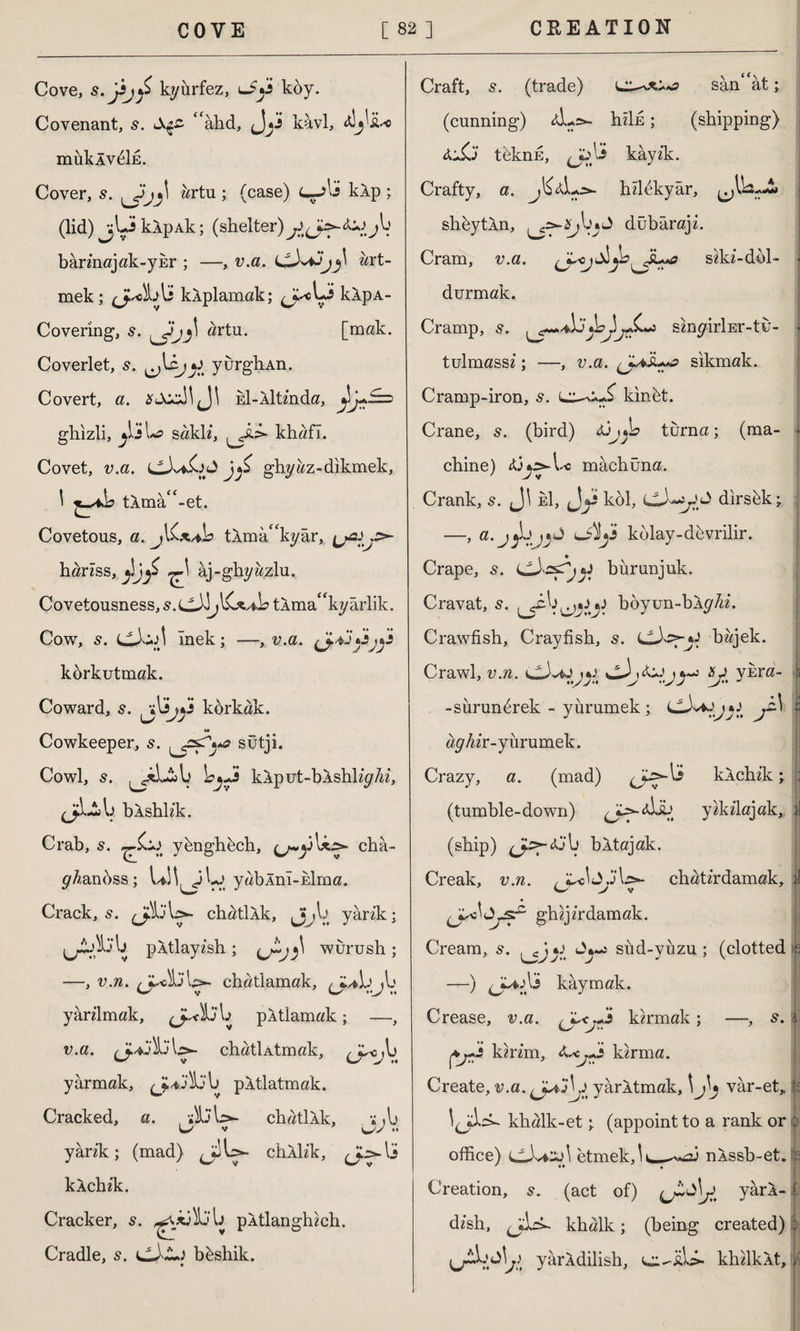 COVE [ 82 ] CREATION
Cove, s. كورفز kyùrfez, قوى kòy.
Covenant, s. عهد “àhd, قول kàvl, مقاوله
mùkàvélE.
Cover, s. اورتى ùrtu ; (case) قاب kÀp ;
(lid) قپاق kÀpAk; (shelter) بارينه‌جق ير
bàrinajak-yEr ; —, v.a. اورتمك ùrt-
mek ; قاپلامق kÀplamak; قپامق kÀpA-
Covering, s. اورتى ùrtu. [mak.
Coverlet, s. يورغان yùrghAn.
Covert, a. ال آلتنده El-Àltinda, كيزلو
ghìzli, صاقلو sàkli, خفى khàfī.
Covet, v.a. كوز ديكمك ghyùz-dìkmek,
طمع ا tÀma“-et.
Covetous, a. طمعكار tÀmà“kyār, حريص
hàrīss, اچ كوزلو àj-ghyùzlu.
Covetousness, s. طمعكارلك tÀma“kyārlìk.
Cow, s. اينك īnek ; —, v.a. قورقوتمق
kòrkutmak.
Coward, s. قورقاق kòrkàk.
Cowkeeper, s. سوتجى sùtji.
Cowl, s. قپوط باشلغى kÀput-bÀshlighi,
باشلق bÀshlik.
Crab, s. ينكچ yènghèch, چاغانوس chà-
ghanòss ; يبانى الما yàbÀnī-Elma.
Crack, s. چاتلاق chàtlÀk, يارق yàrik ;
پاتلايش pÀtlayish ; اوروش wùrush ;
—, v.n. چاتلامق chàtlamak, يارلمق
yàrilmak, پاتلامق pÀtlamak ; —,
v.a. چاتلاتمق chàtlAtmak, يارمق
yàrmak, پاتلاتمق pÀtlatmak.
Cracked, a. چاتلاق chàtlÀk, يارق
yàrik ; (mad) چالق chÀlik, قاچق
kÀchik.
Cracker, s. پاتلانغچ pÀtlanghìch.
Cradle, s. بشك bèshik.
Craft, s. (trade) صنعت sàn“at ;
(cunning) حيله hīlE ; (shipping)
تكنه teknE, قايق kàyik.
Crafty, a. حيله‌كار hīlékyār, شيطان
shèytÀn, دوباره‌جى dūbāraji.
Cram, v.a. صيقى طولدرمق siki-dòl-
durmak.
Cramp, s. سكيرلر طوتلمسى singirlEr-tū-
tulmassi ; —, v.a. صيقمق sìkmak.
Cramp-iron, s. كنت kìnèt.
Crane, s. (bird) طورنه tùrna ; (ma-
chine) ماچونه màchūna.
Crank, s. ال El, قول kòl, ديرسك dìrsèk ;
—, a. قولاى دوريلور kòlay-dèvrilir.
Crape, s. بورنجك bùrunjuk.
Cravat, s. بويون باغى bòyun-bÀghi.
Crawfish, Crayfish, s. بوجك bùjek.
Crawl, v.n. يره سورينه‌رك يورمك yEra-
-sùrunérek - yùrumek ; اغر يورمك
àghir-yùrumek.
Crazy, a. (mad) قاچق kÀchik ;
(tumble-down) يقله‌جق yikilajak,
(ship) باته‌جق bÀtajak.
Creak, v.n. چاتردامق chàtirdamak,
غجردامق ghijirdamak.
Cream, s. سود يوزى sùd-yùzu ; (clotted
—) قايمق kàymak.
Crease, v.a. قيرمق kirmak ; —, s.
قيرم kirim, قيرمه kirma.
Create, v.a. يراتمق yàrÀtmak, وار ا vàr-et,
خلق ا khàlk-et ; (appoint to a rank or
office) ايتمك ètmek, نصب ا nÀssb-et.
Creation, s. (act of) يرادش yàrÀ-
dish, خلق khàlk ; (being created)
يراديلش yàrÀdilish, خلقت khilkÀt,